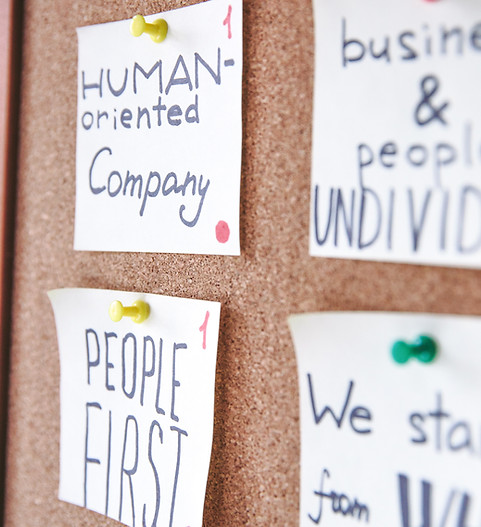 1
HUMAN-
oriented
Company
busine
&
people
UNDIVID
1
PEOPLE
FIRST
We sta
from W